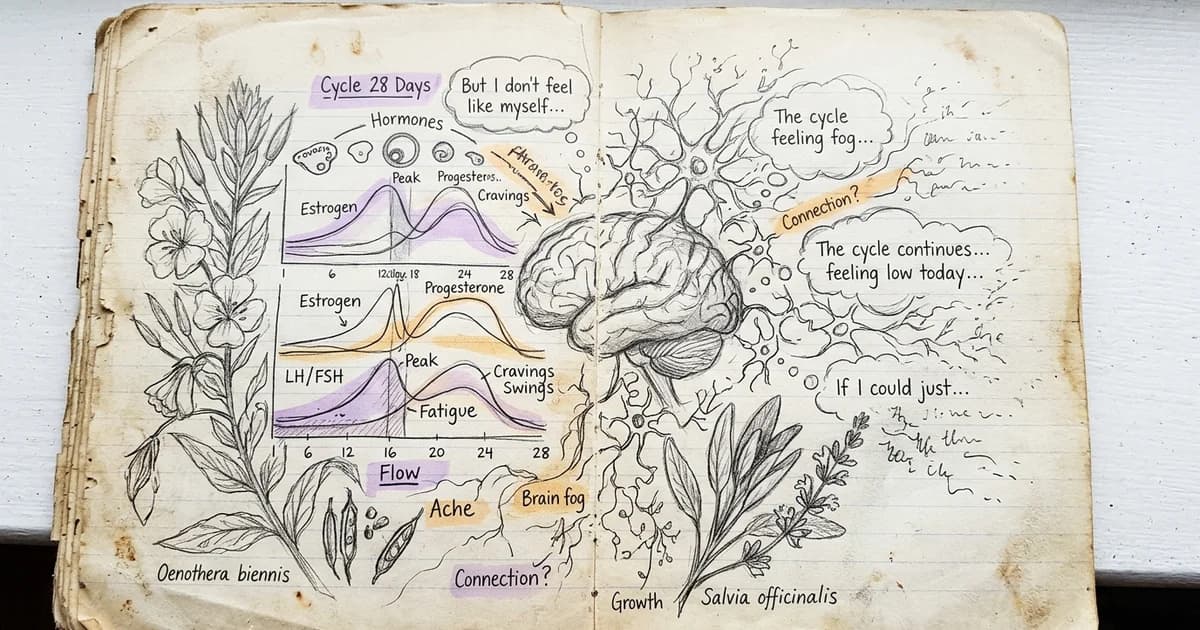 Cycle 28 Days
But I don't feel
like myself...
Hormones
Peak
Progesteros..
Cravings
Estrogen
1 6 18 24 28
Estrogen
Progesterone
LH/FSH
Peak
Cravings
Swings
Fatigue
6 12 16 20 24 28
Flow
Ache
Brain fog
Connection?
Oenothera biennis
The cycle
feeling fog...
Connection?
The cycle continues...
feeling low today...
If I could just...
Growth
Salvia officinalis